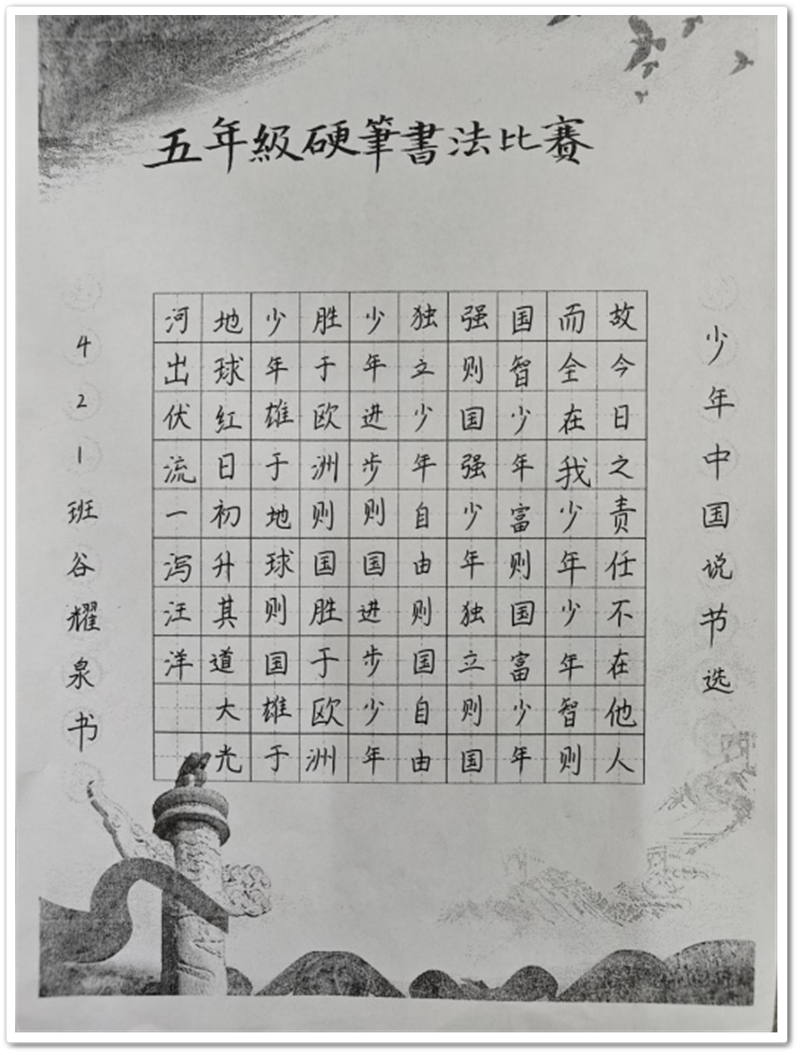 五年級硬筆書法比賽
少年中国说节选
故今日之责任不在他人
而全在我少年少年智则
国智少年富则国富少年
强则国强少年独立则国
独立少年自由则国自由
少年进步则国进步少年
胜于欧洲则国胜于欧洲
少年雄于地球则国雄于
地球红日初升其道大光
河出伏流一泻汪洋
421班谷耀泉书